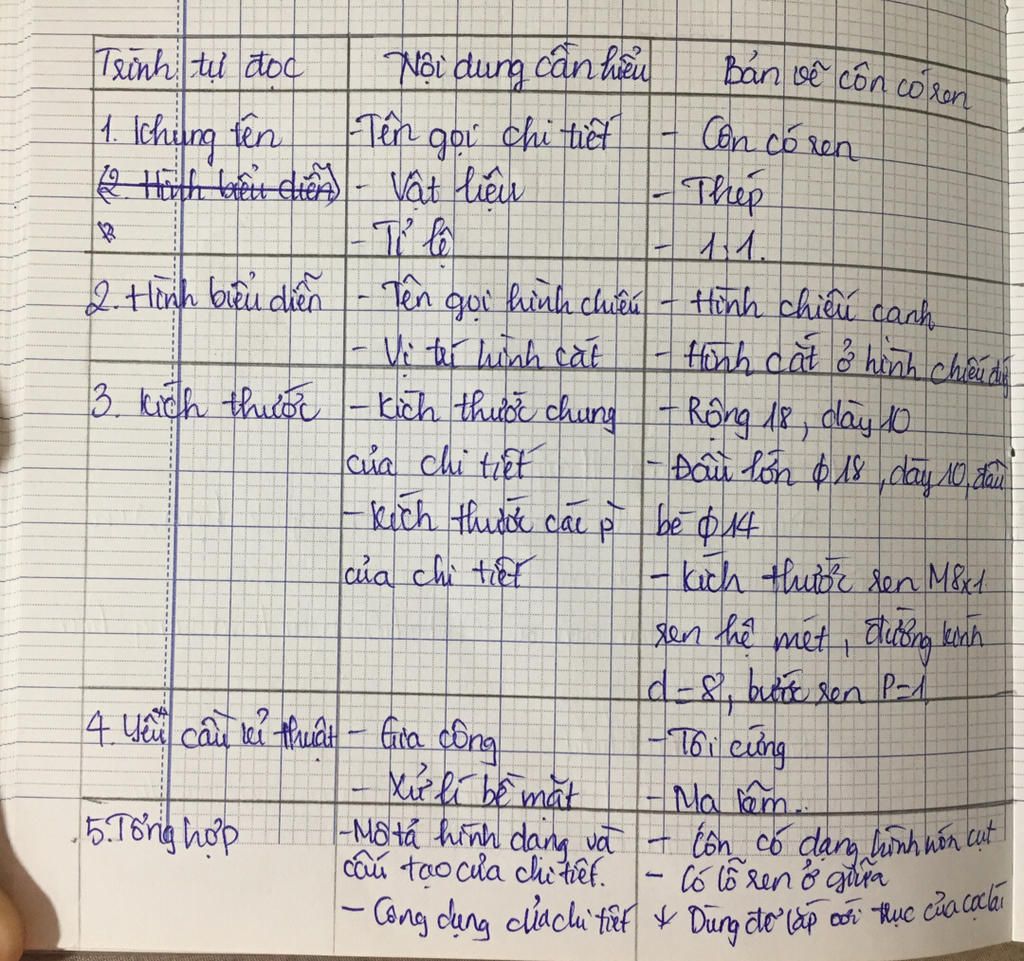 Trình tự đọc Nội dung cần hiểu Bản vẽ côn có ren
1. Khung tên -Tên gọi chi tiết - Côn có ren
(2. Hình biểu diễn) - Vật liệu - Thép
- Tỉ lệ - 1:1.
2. Hình biểu diễn - Tên gọi hình chiếu - Hình chiếu cạnh
- Vị trí hình cắt - Hình cắt ở hình chiếu
3. Kích thước - Kích thước chung - Rộng 18, dày 10
của chi tiết - Đầu lớn ϕ18, dày 10, đầu
- Kích thước các p bé ϕ14
của chi tiết - Kích thước ren M8x1
ren hệ mét, đường kính
d=8, bước ren P=1
4. Yêu cầu kĩ thuật - Gia công - Tôi cứng
- Xử lí bề mặt - Mạ kẽm..
5. Tổng hợp -Mô tả hình dạng và - Côn có dạng hình nón cụt
cấu tạo của chi tiết. - Có lỗ ren ở giữa
- Công dụng của chi tiết + Dùng để lắp với trục của cọc lái